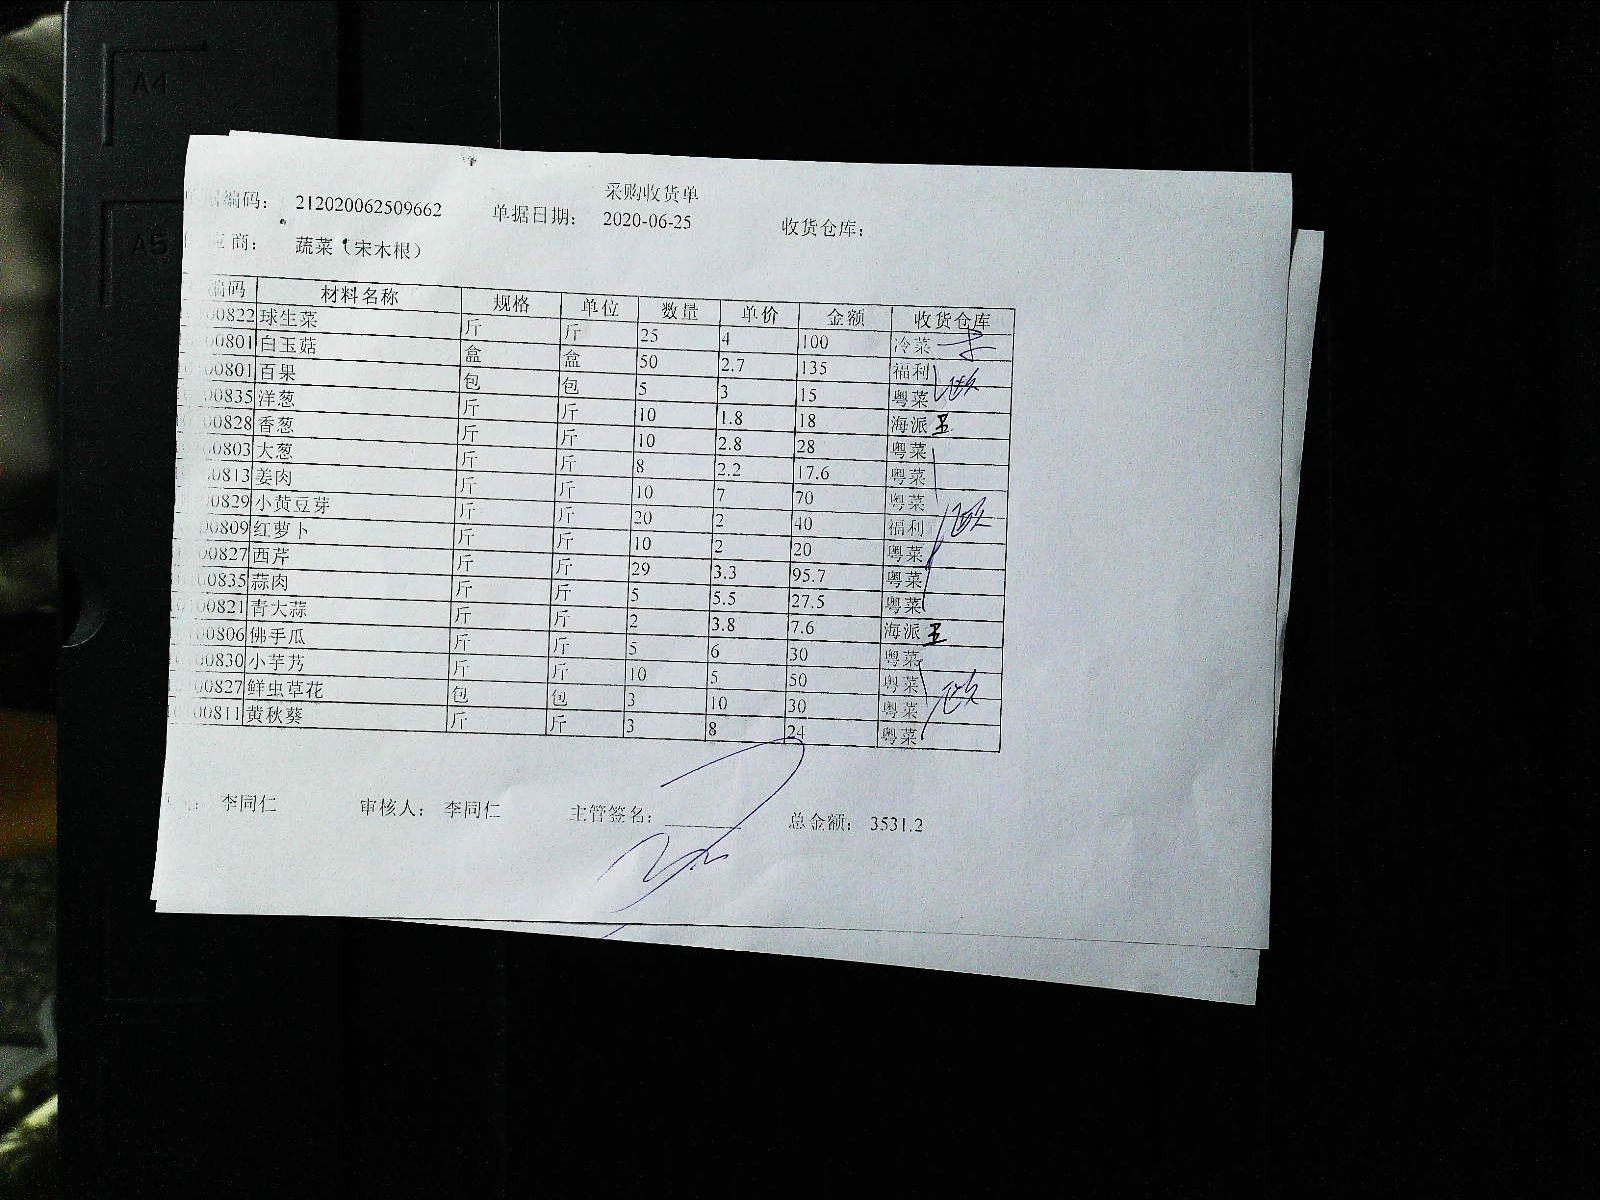 A4
A5
采购收货单
编码： 212020062509662 单据日期： 2020-06-25 收货仓库：
商： 蔬菜（宋木根）
编码 材料名称 规格 单位 数量 单价 金额 收货仓库
00822 球生菜 斤 斤 25 4 100 冷菜
00801 白玉菇 盒 盒 50 2.7 135 福利
00801 百果 包 包 5 3 15 粤菜
00835 洋葱 斤 斤 10 1.8 18 海派
00828 香葱 斤 斤 10 2.8 28 粤菜
00803 大葱 斤 斤 8 2.2 17.6 粤菜
0813 姜肉 斤 斤 10 7 70 粤菜
00829 小黄豆芽 斤 斤 20 2 40 福利
00809 红萝卜 斤 斤 10 2 20 粤菜
00827 西芹 斤 斤 29 3.3 95.7 粤菜
00835 蒜肉 斤 斤 5 5.5 27.5 粤菜
00821 青大蒜 斤 斤 2 3.8 7.6 海派
00806 佛手瓜 斤 斤 5 6 30 粤菜
00830 小芋艿 斤 斤 10 5 50 粤菜
00827 鲜虫草花 包 包 3 10 30 粤菜
00811 黄秋葵 斤 斤 3 8 24 粤菜
李同仁 审核人： 李同仁 主管签名： 总金额： 3531.2